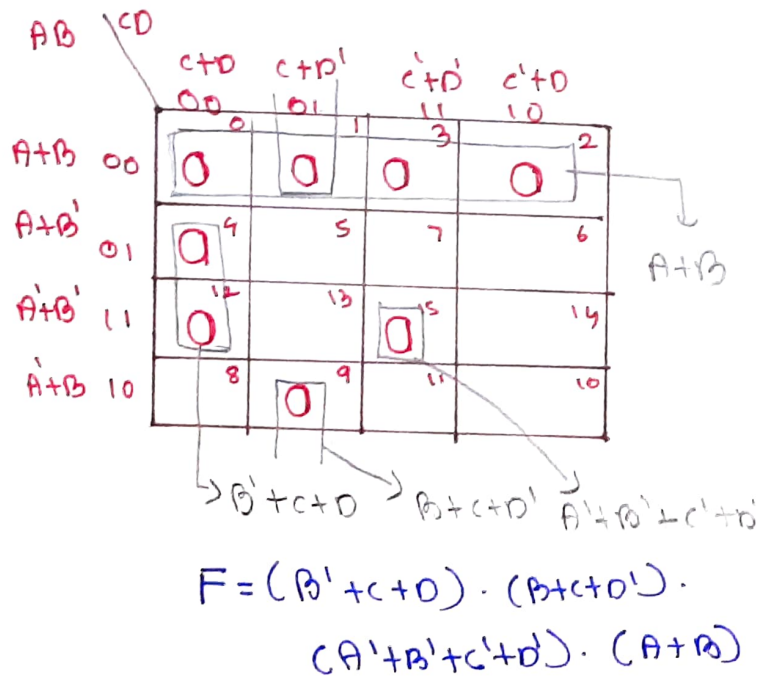 AB CD
C+D C+D' C'+D' C'+D
00 01 11 10
A+B 00 0 0 0 1 0 3 0 2
A+B' 01 0 4 5 7 6
A+B
A'+B' 11 0 12 13 0 15 14
A'+B 10 8 0 9 11 10
B'+C+D B+C+D' A'+B'+C'+D'
F = (B'+C+D) . (B+C+D') .
(A'+B'+C'+D') . (A+B)